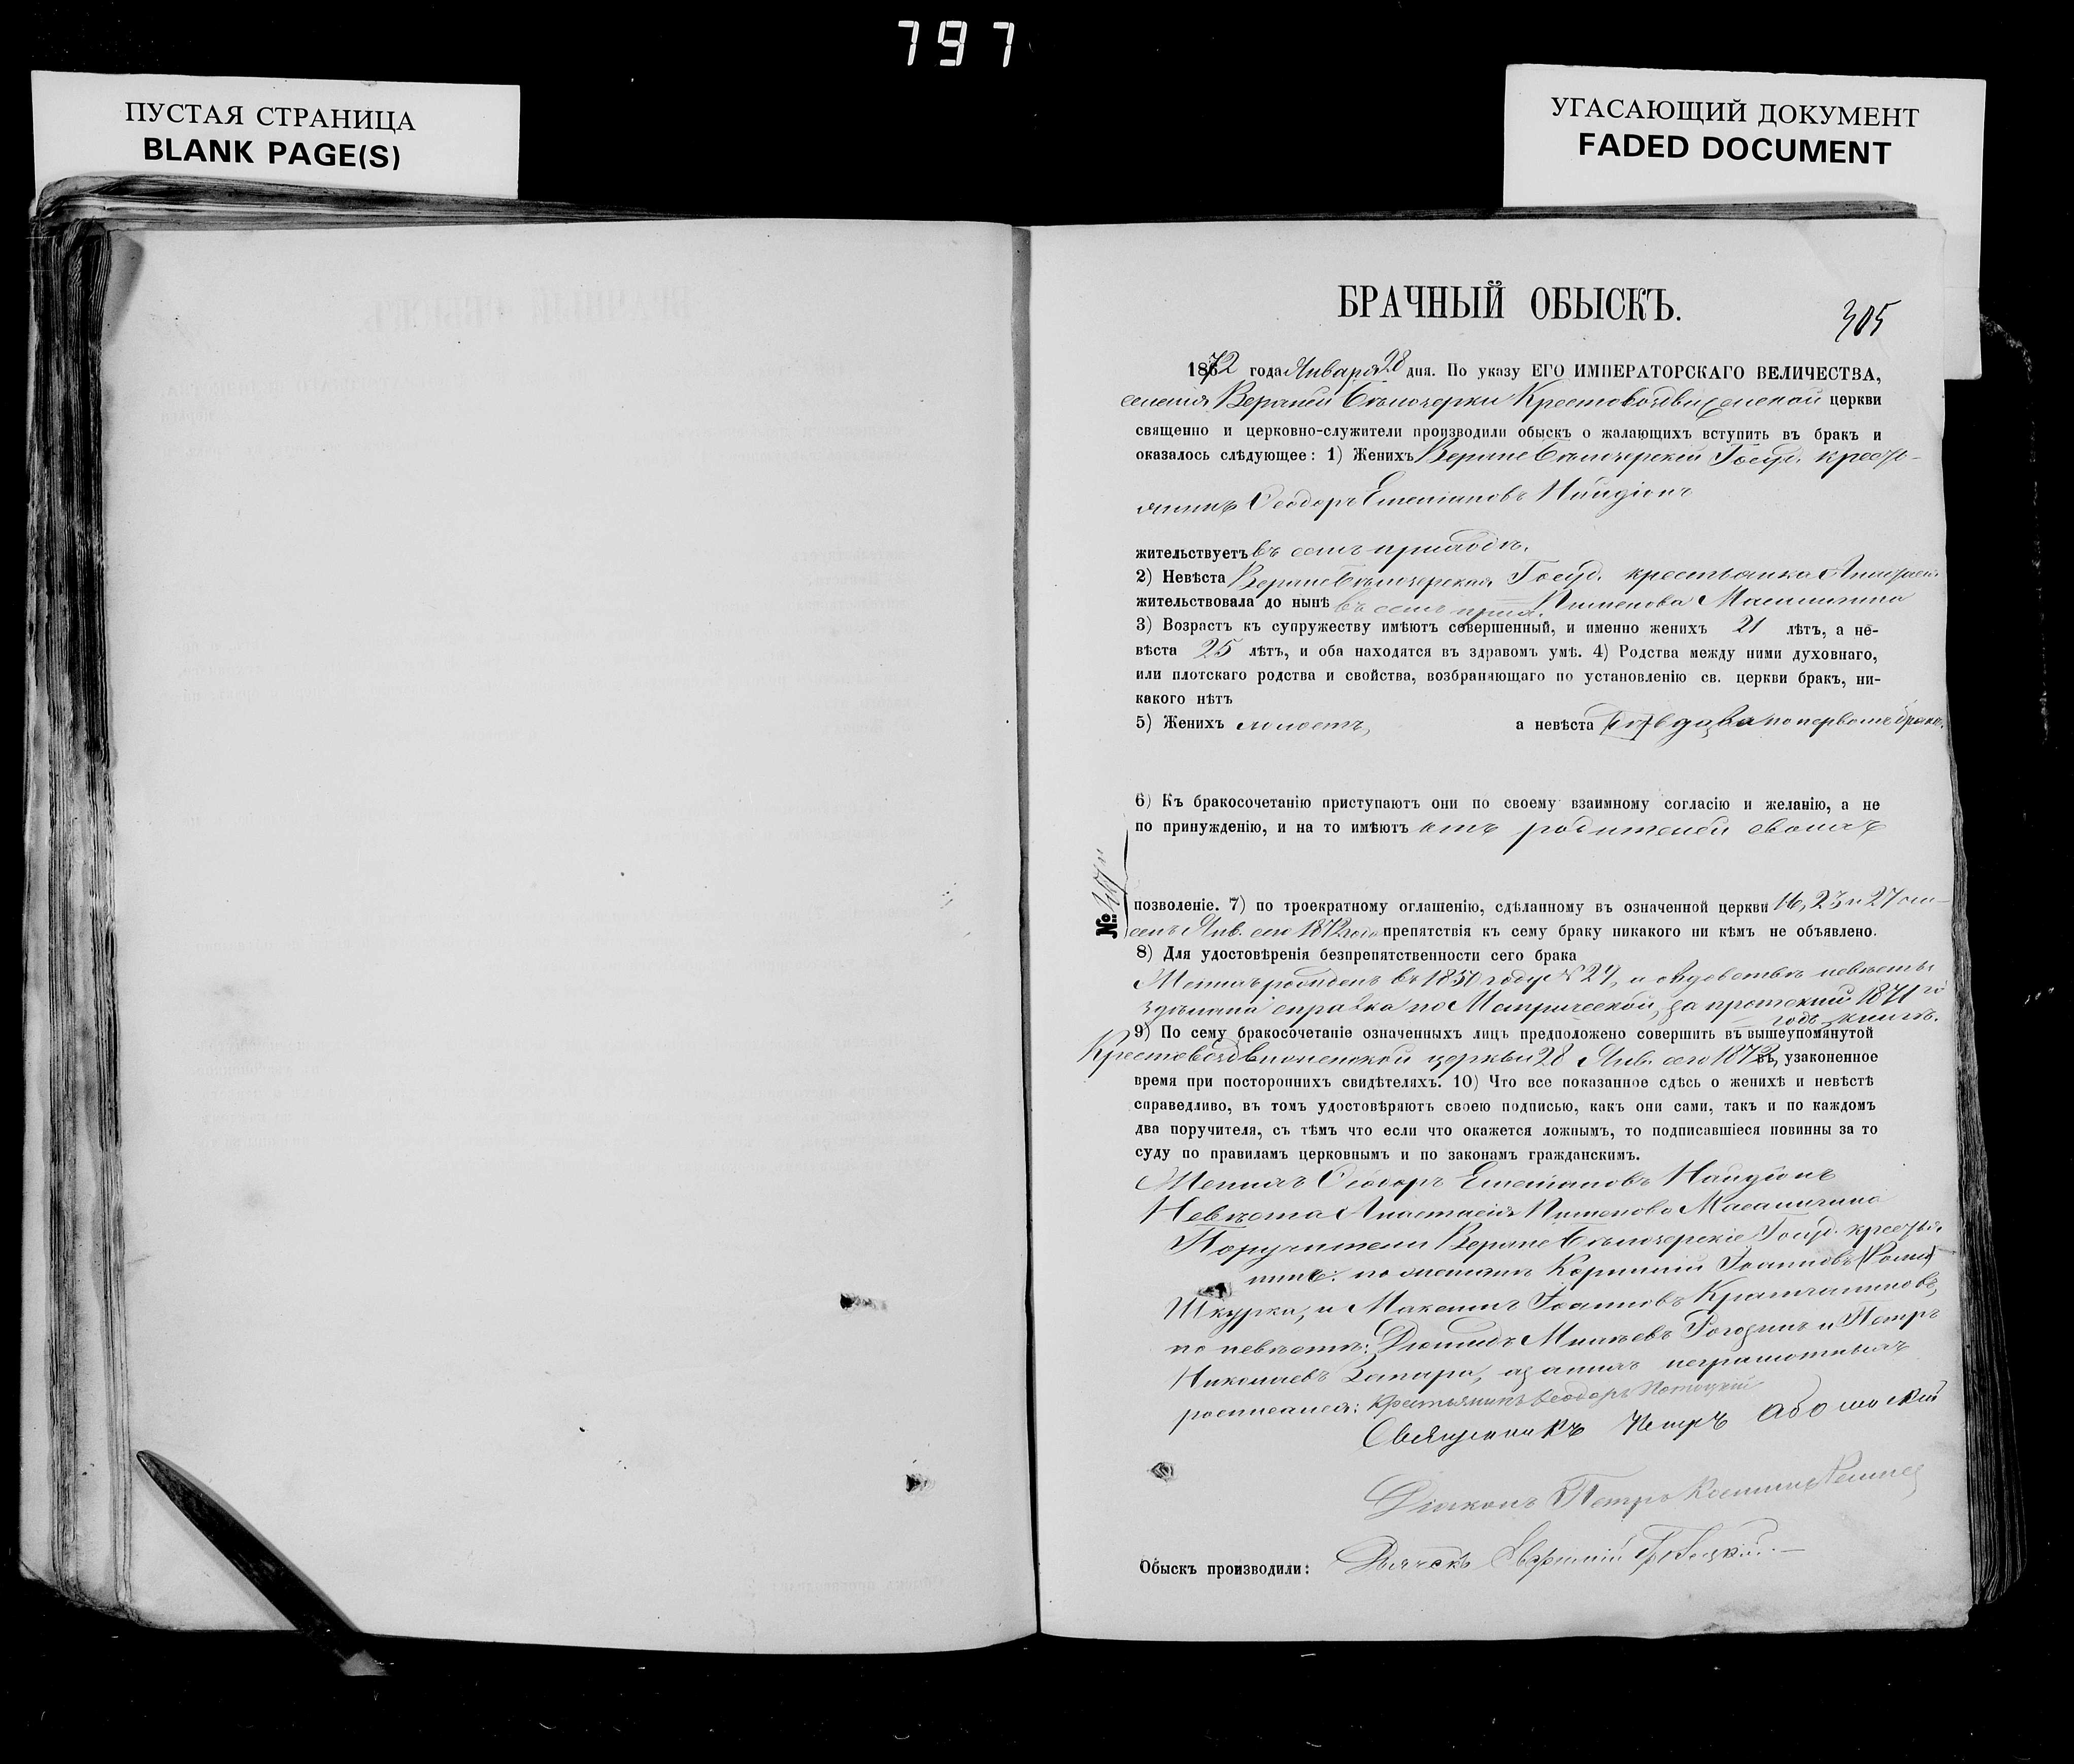 797
ПУСТАЯ СТРАНИЦА
BLANK PAGE(S)
УГАСАЮЩИЙ ДОКУМЕНТ
FADED DOCUMENT
БРАЧНЫЙ ОБЫСКЪ.
305
1872 года Января 28 дня. По указу ЕГО ИМПЕРАТОРСКАГО ВЕЛИЧЕСТВА,
селенія Верхней Бѣлозерки Крестовоздвиженской церкви
священно и церковно-служители производили обыскъ о жалающихъ вступить въ бракъ и
оказалось слѣдующее: 1) Женихъ Верхне Бѣлозерскій Госуд. кресть-
янинъ Ѳеодоръ Емеліановъ Найдіонъ
жительствуетъ въ семъ приходѣ.
2) Невѣста Верхне Бѣлозерская Госуд. крестьянка Анастасія
жительствовала до нынѣ въ семъ прих. Пименова Масалигина
3) Возрастъ къ супружеству имѣютъ совершенный, и именно женихъ 21 лѣтъ, а не-
вѣста 25 лѣтъ, и оба находятся въ здравомъ умѣ. 4) Родства между ними духовнаго,
или плотскаго родства и свойства, возбраняющаго по установленію св. церкви бракъ, ни-
какого нѣтъ
5) Женихъ холостъ, а невѣста вдова по первомъ бракѣ.
6) Къ бракосочетанію приступаютъ они по своему взаимному согласію и желанію, а не
по принужденію, и на то имѣютъ отъ родителей своихъ
№
позволеніе. 7) по троекратному оглашенію, сдѣланному въ означенной церкви 16, 23 и 27 чи-
селъ Янв. сего 1872 года препятствія къ сему браку никакого ни кѣмъ не объявлено.
8) Для удостовѣренія безпрепятственности сего брака
Женихъ рожденъ въ 1850 году № 29, и о вдовствѣ невѣсты
здѣлана справка по Метрической, за протекшій 1871й
годъ, книгѣ.
9) По сему бракосочетаніе означенныхъ лицъ предположено совершить въ вышеупомянутой
Крестовоздвиженской церкви 28 Янв. сего 1872 въ узаконенное
время при постороннихъ свидѣтеляхъ. 10) Что все показанное сдѣсь о женихѣ и невѣстѣ
справедливо, въ томъ удостовѣряютъ своею подписью, какъ они сами, такъ и по каждомъ
два поручителя, съ тѣмъ что если что окажется ложнымъ, то подписавшіеся повинны за то
суду по правиламъ церковнымъ и по законамъ гражданскимъ.
Женихъ Ѳеодоръ Емеліановъ Найдіонъ
Невѣста Анастасія Пименова Масалигина
Поручители Верхне Бѣлозерскіе Госуд. крестья
нинъ: по женихѣ Корнилій Іоанновъ
Шкурка, и Максимъ Іоанновъ
по невѣстѣ: Діомидъ Михѣевъ Рогозинъ и Петръ
Николаевъ Запара, а за нихъ неграмотныхъ
росписался: Крестьянинъ Ѳеодоръ
Священникъ Петръ
Діаконъ Петръ
Обыскъ производили: Дьячокъ